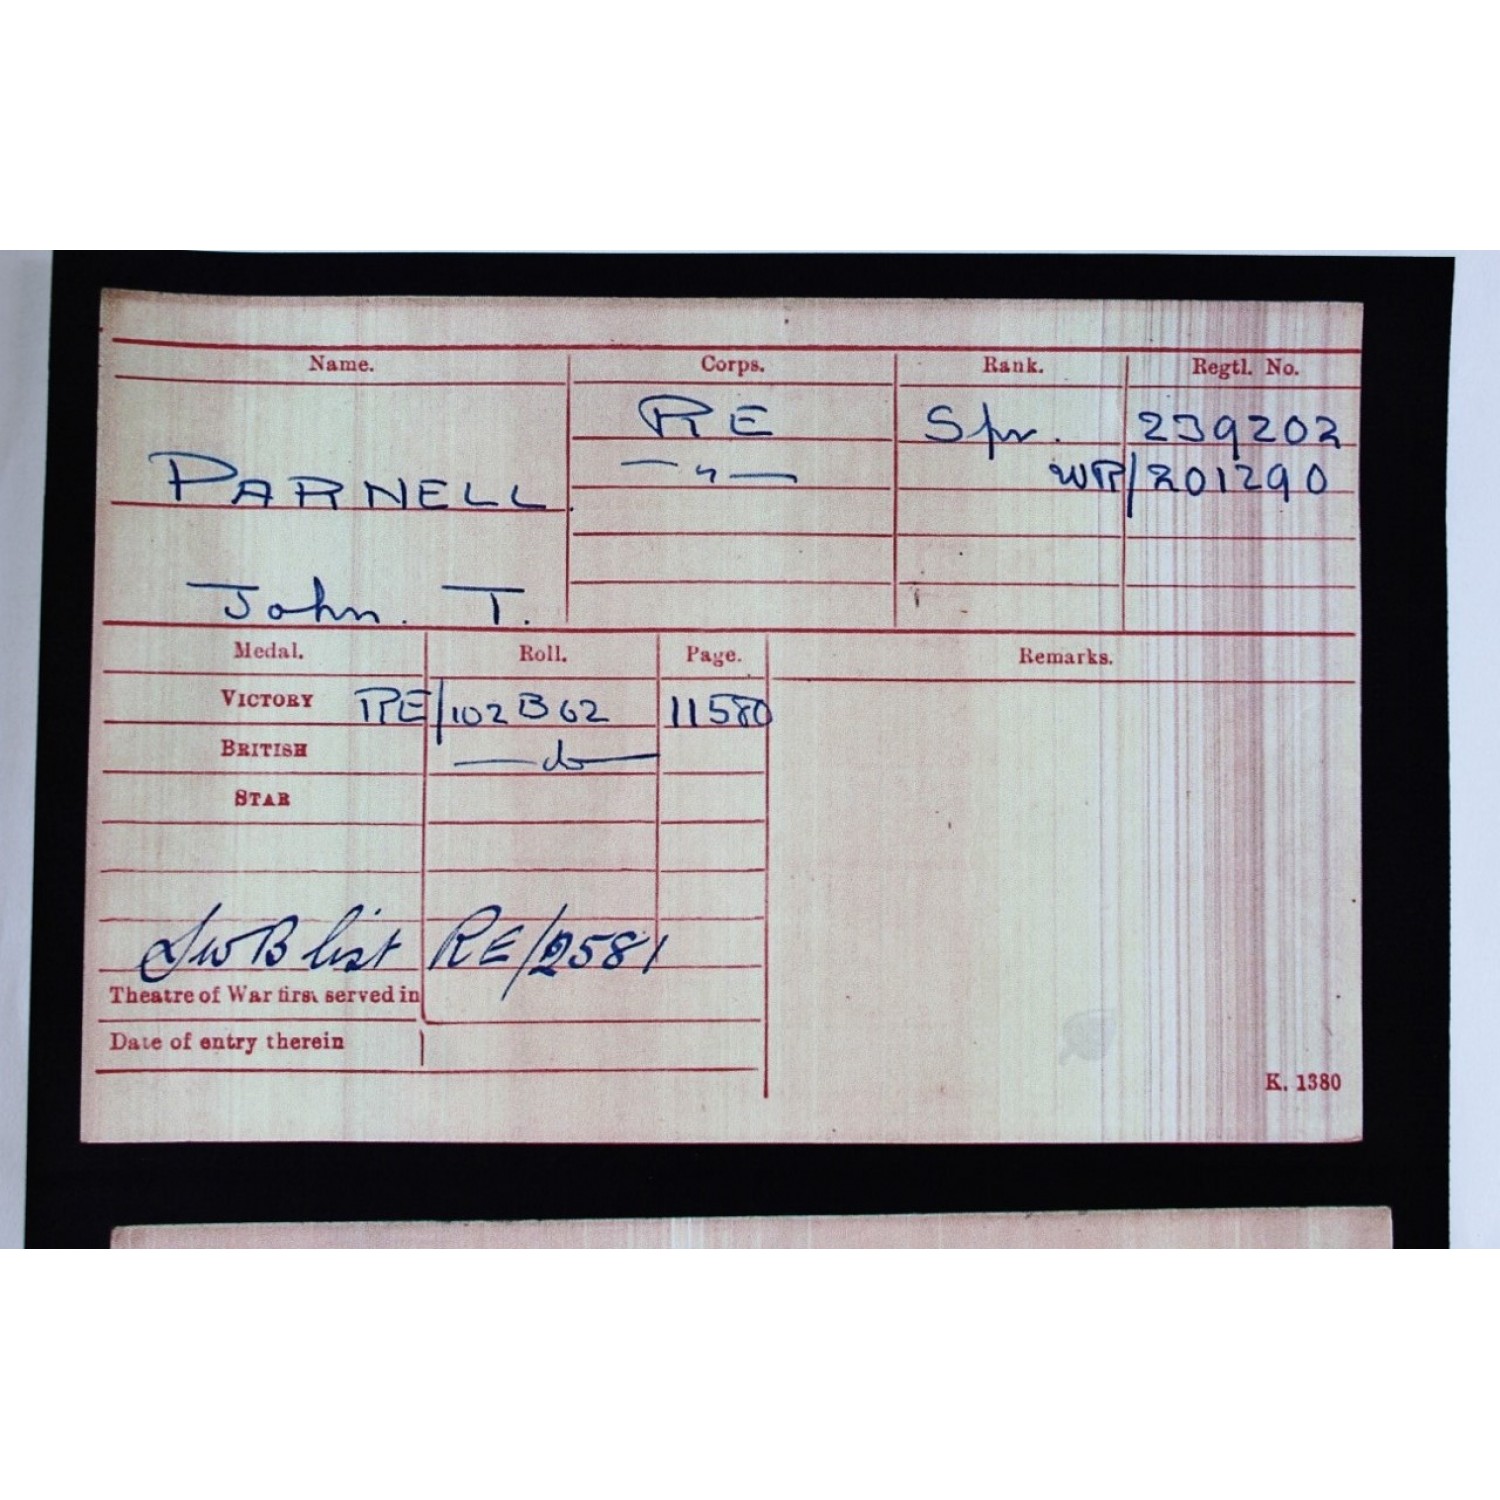 Name. Corps. Rank. Regtl. No.
RE Spr. 239202
PARNELL — " — WR/201290
John. T.
Medal. Roll. Page. Remarks.
VICTORY RE/102B62 11580
BRITISH — do —
STAR
SWB list RE/2581
Theatre of War first served in
Date of entry therein
K. 1380